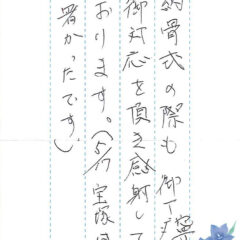 納骨式の際も御丁寧
御対応を頂き感射して
おります。(5/1宝塚は
暑かったです)